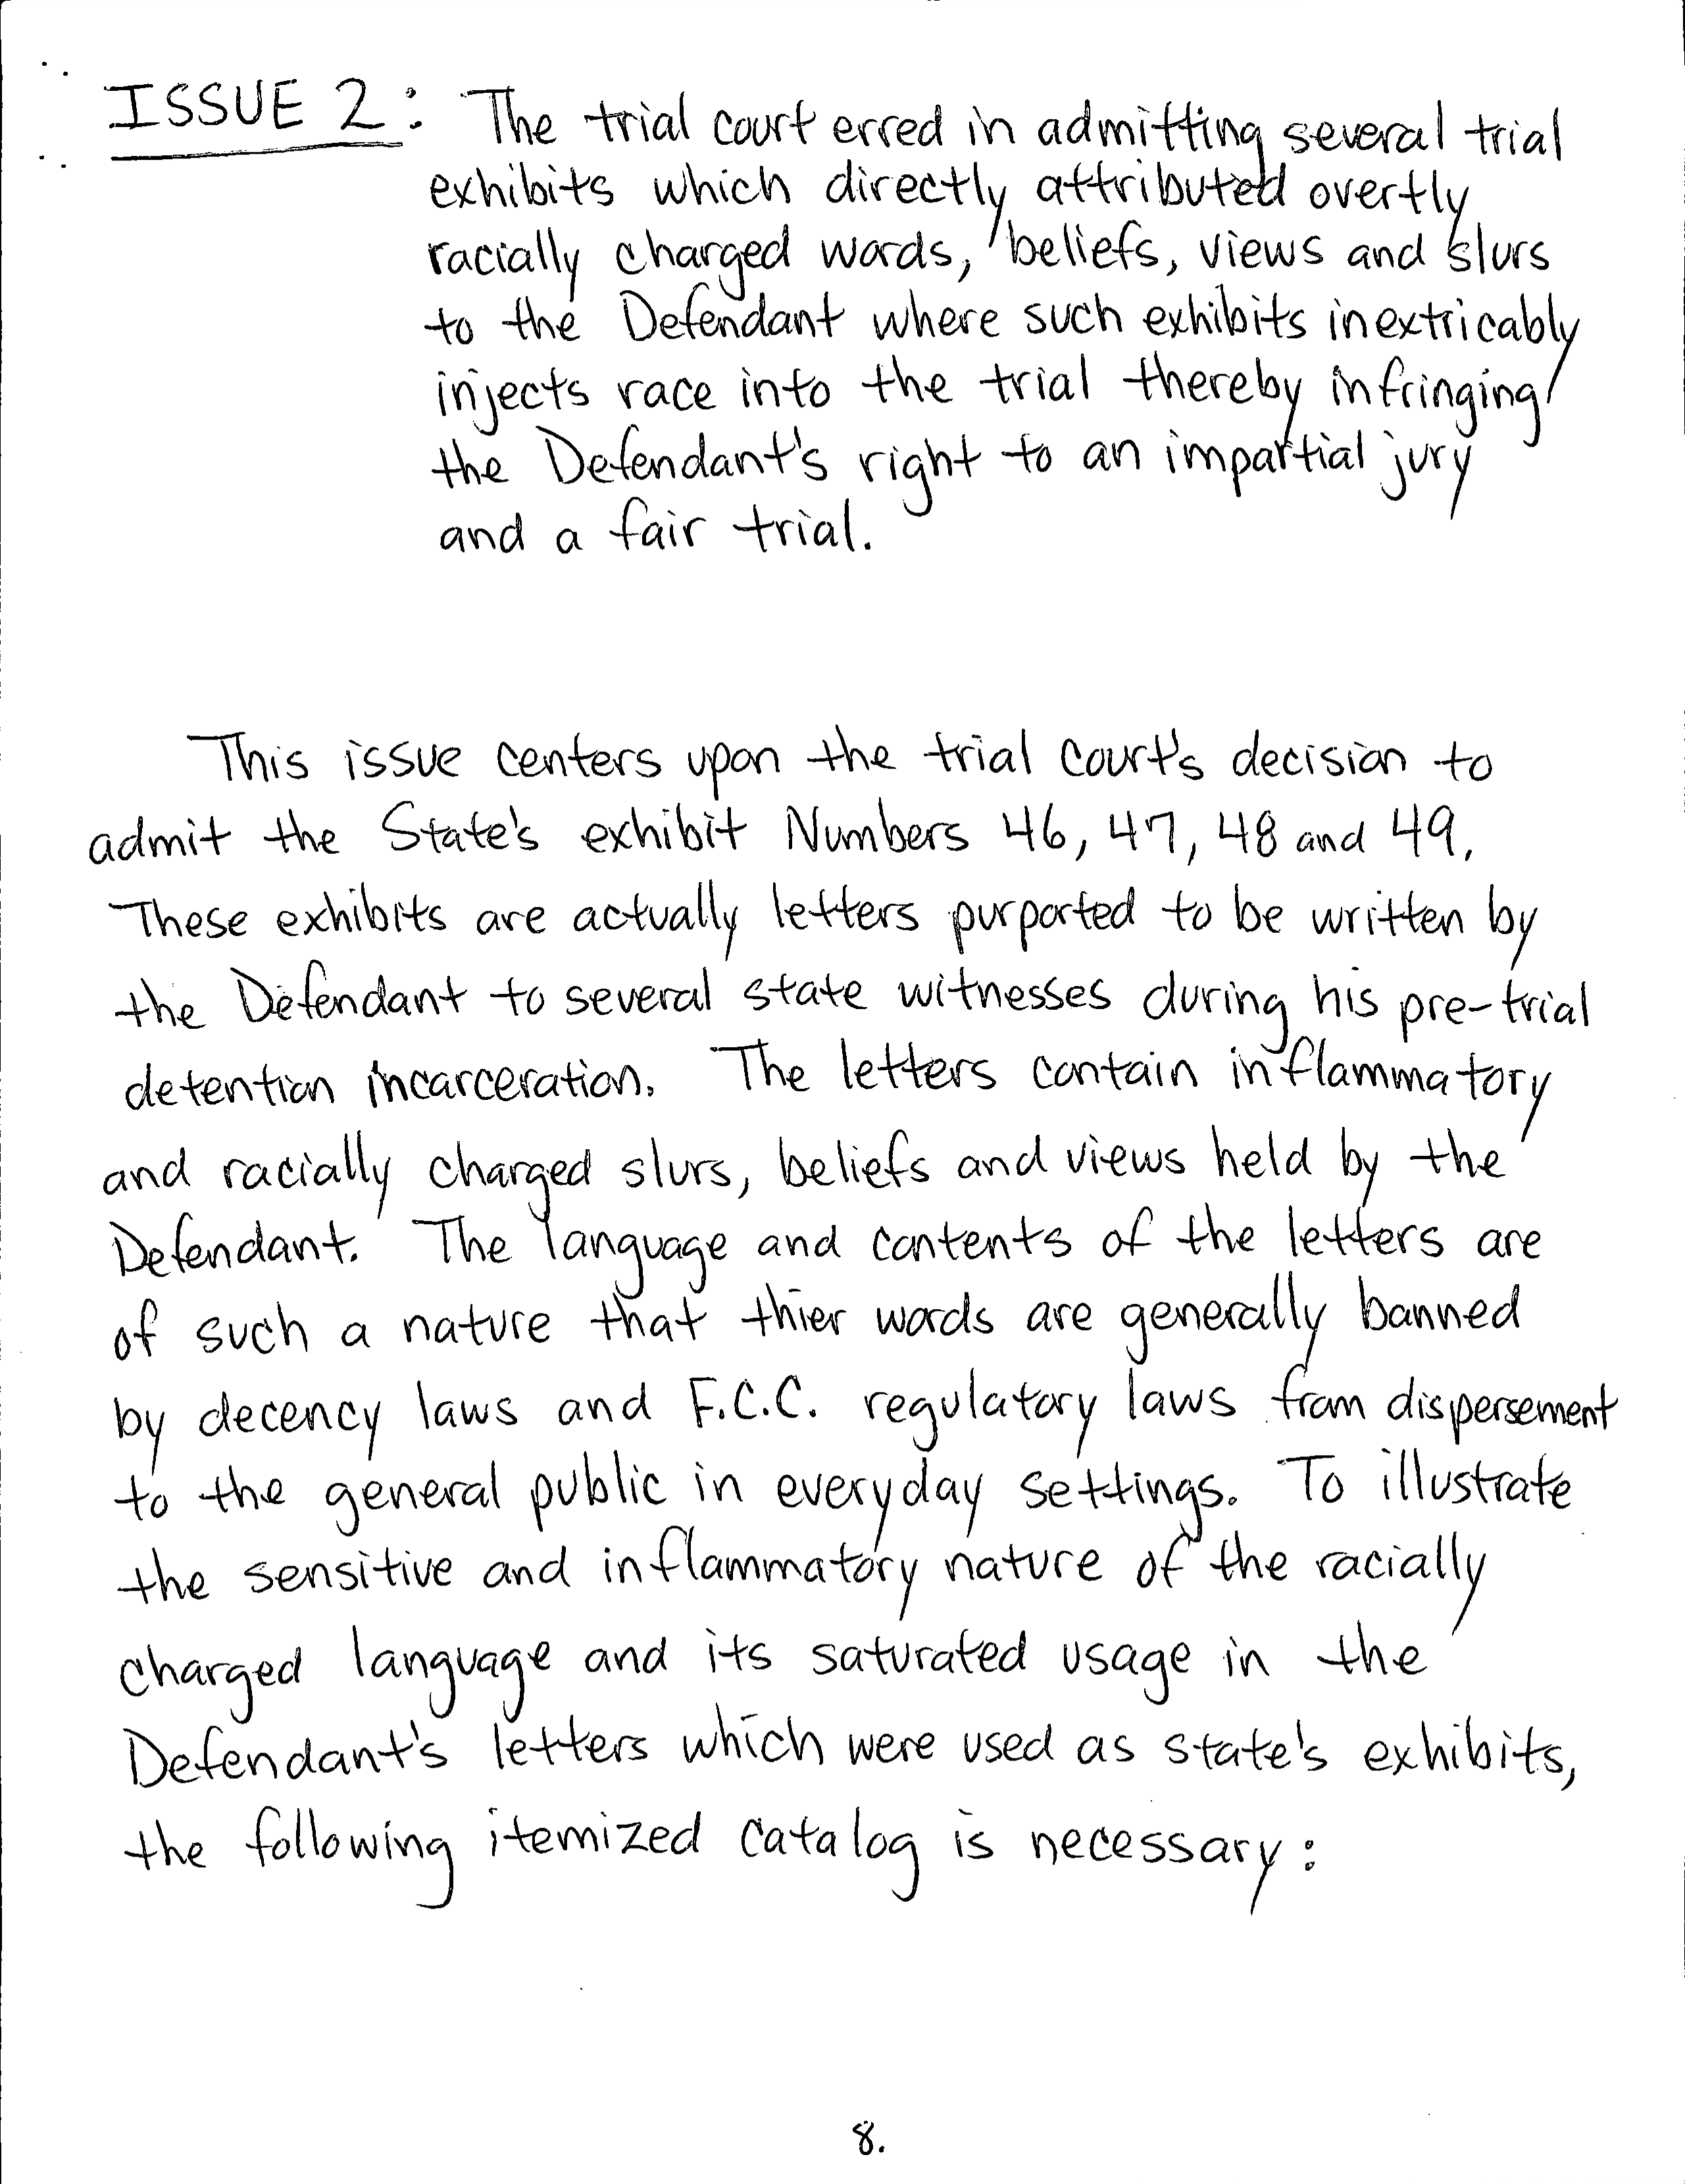 ISSUE 2: The trial court erred in admitting several trial
exhibits which directly attributed overtly
racially charged words, beliefs, views and slurs
to the Defendant where such exhibits inextricably
injects race into the trial thereby infringing
the Defendant's right to an impartial jury
and a fair trial.
This issue centers upon the trial court's decision to
admit the State's exhibit Numbers 46, 47, 48 and 49.
These exhibits are actually letters purported to be written by
the Defendant to several state witnesses during his pre-trial
detention incarceration. The letters contain inflammatory
and racially charged slurs, beliefs and views held by the
Defendant. The language and contents of the letters are
of such a nature that thier words are generally banned
by decency laws and F.C.C. regulatory laws from dispersement
to the general public in everyday settings. To illustrate
the sensitive and inflammatory nature of the racially
charged language and its saturated usage in the
Defendant's letters which were used as state's exhibits,
the following itemized catalog is necessary:
8.